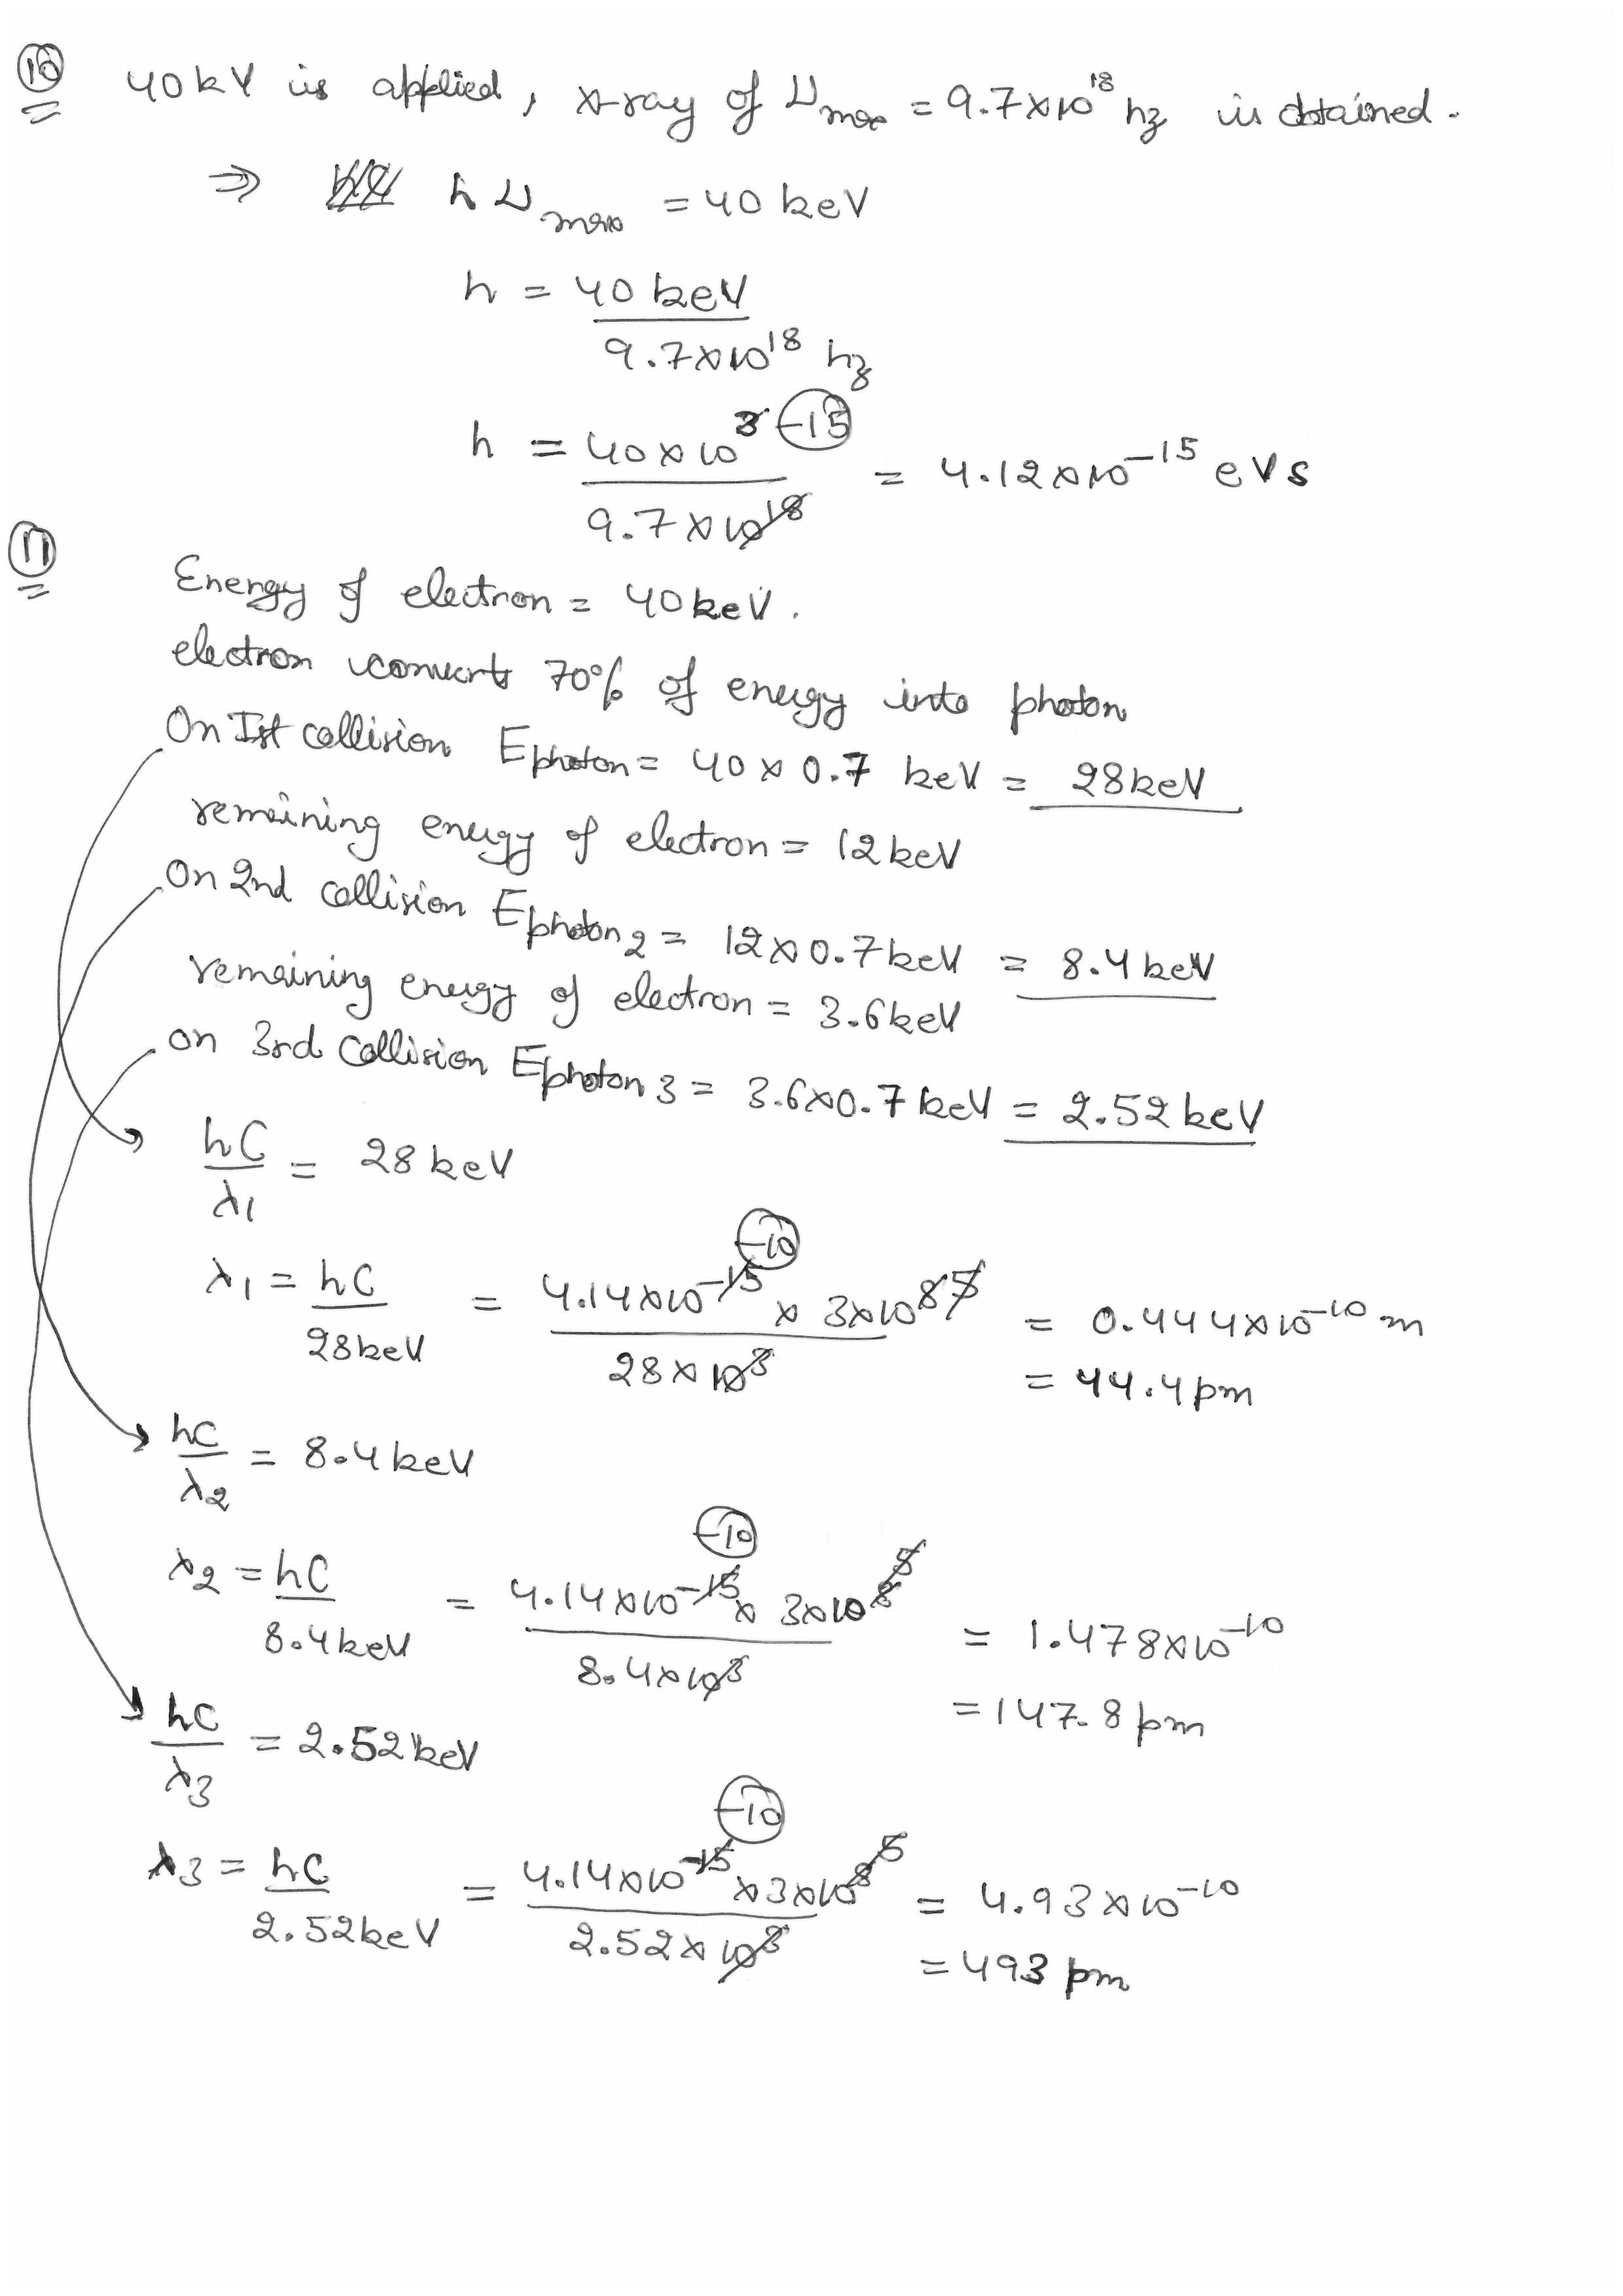 10 40kV is applied, x-ray of νmax = 9.7×10^18 hz is obtained.
⇒ hνmax = 40 keV
h = 40 keV / 9.7×10^18 hz
h = 40×10^3 (-15) / 9.7×10^18 = 4.12×10^-15 eVs
11
Energy of electron = 40keV.
electron converts 70% of energy into photon
On Ist collision Ephoton = 40×0.7 keV = 28keV
remaining energy of electron = 12keV
On 2nd collision Ephoton2 = 12×0.7keV = 8.4keV
remaining energy of electron = 3.6keV
on 3rd collision Ephoton3 = 3.6×0.7keV = 2.52keV
hC/λ1 = 28keV
λ1 = hC/28keV = 4.14×10^-15 (-10) × 3×10^8 5 / 28×10^3 = 0.444×10^-10 m
= 44.4pm
hC/λ2 = 8.4keV
λ2 = hC/8.4keV = 4.14×10^-15 (-10) × 3×10^8 5 / 8.4×10^3 = 1.478×10^-10
= 147.8pm
hC/λ3 = 2.52keV
λ3 = hC/2.52keV = 4.14×10^-15 (-10) ×3×10^8 5 / 2.52×10^3 = 4.93×10^-10
= 493 pm